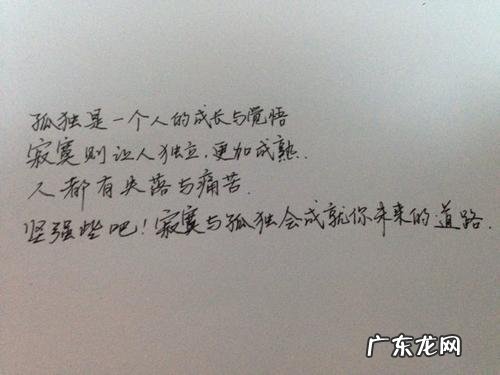 孤独是一个人的成长与觉悟
寂寞则让人独立.更加成熟.
人都有失落与痛苦.
坚强些吧!寂寞与孤独会成就你未来的道路.
广东龙网